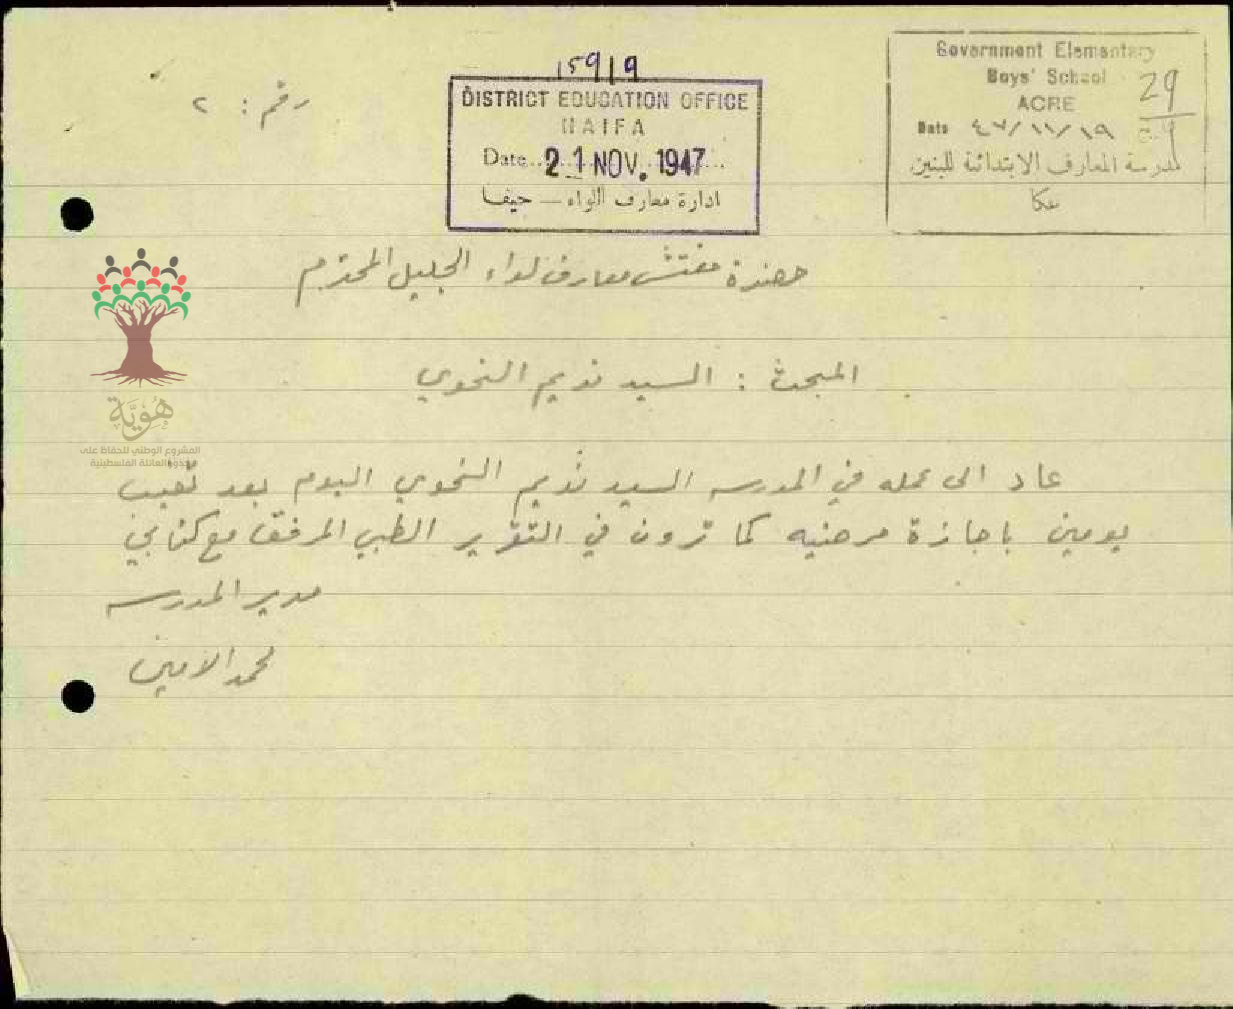 Government Elementary
Boys' School
ACRE
29
Date ٤٧/١١/١٩
مدرسة المعارف الابتدائية للبنين
عكا
15919
DISTRICT EDUCATION OFFICE
HAIFA
Date 21 NOV. 1947
ادارة معارف اللواء — حيفا
رقم : ٢
حضرة مفتش معارف لواء الجليل المحترم
المبحث : السيد نديم النحوي
عاد الى عمله في المدرسه السيد نديم النحوي اليوم بعد تغيب
يومين باجازة مرضيه كما ترون في التقرير الطبي المرفق مع كتابي
مدير المدرسه
محمد الامين
هُوِيَّة
المشروع الوطني للحفاظ على
جذور العائلة الفلسطينية